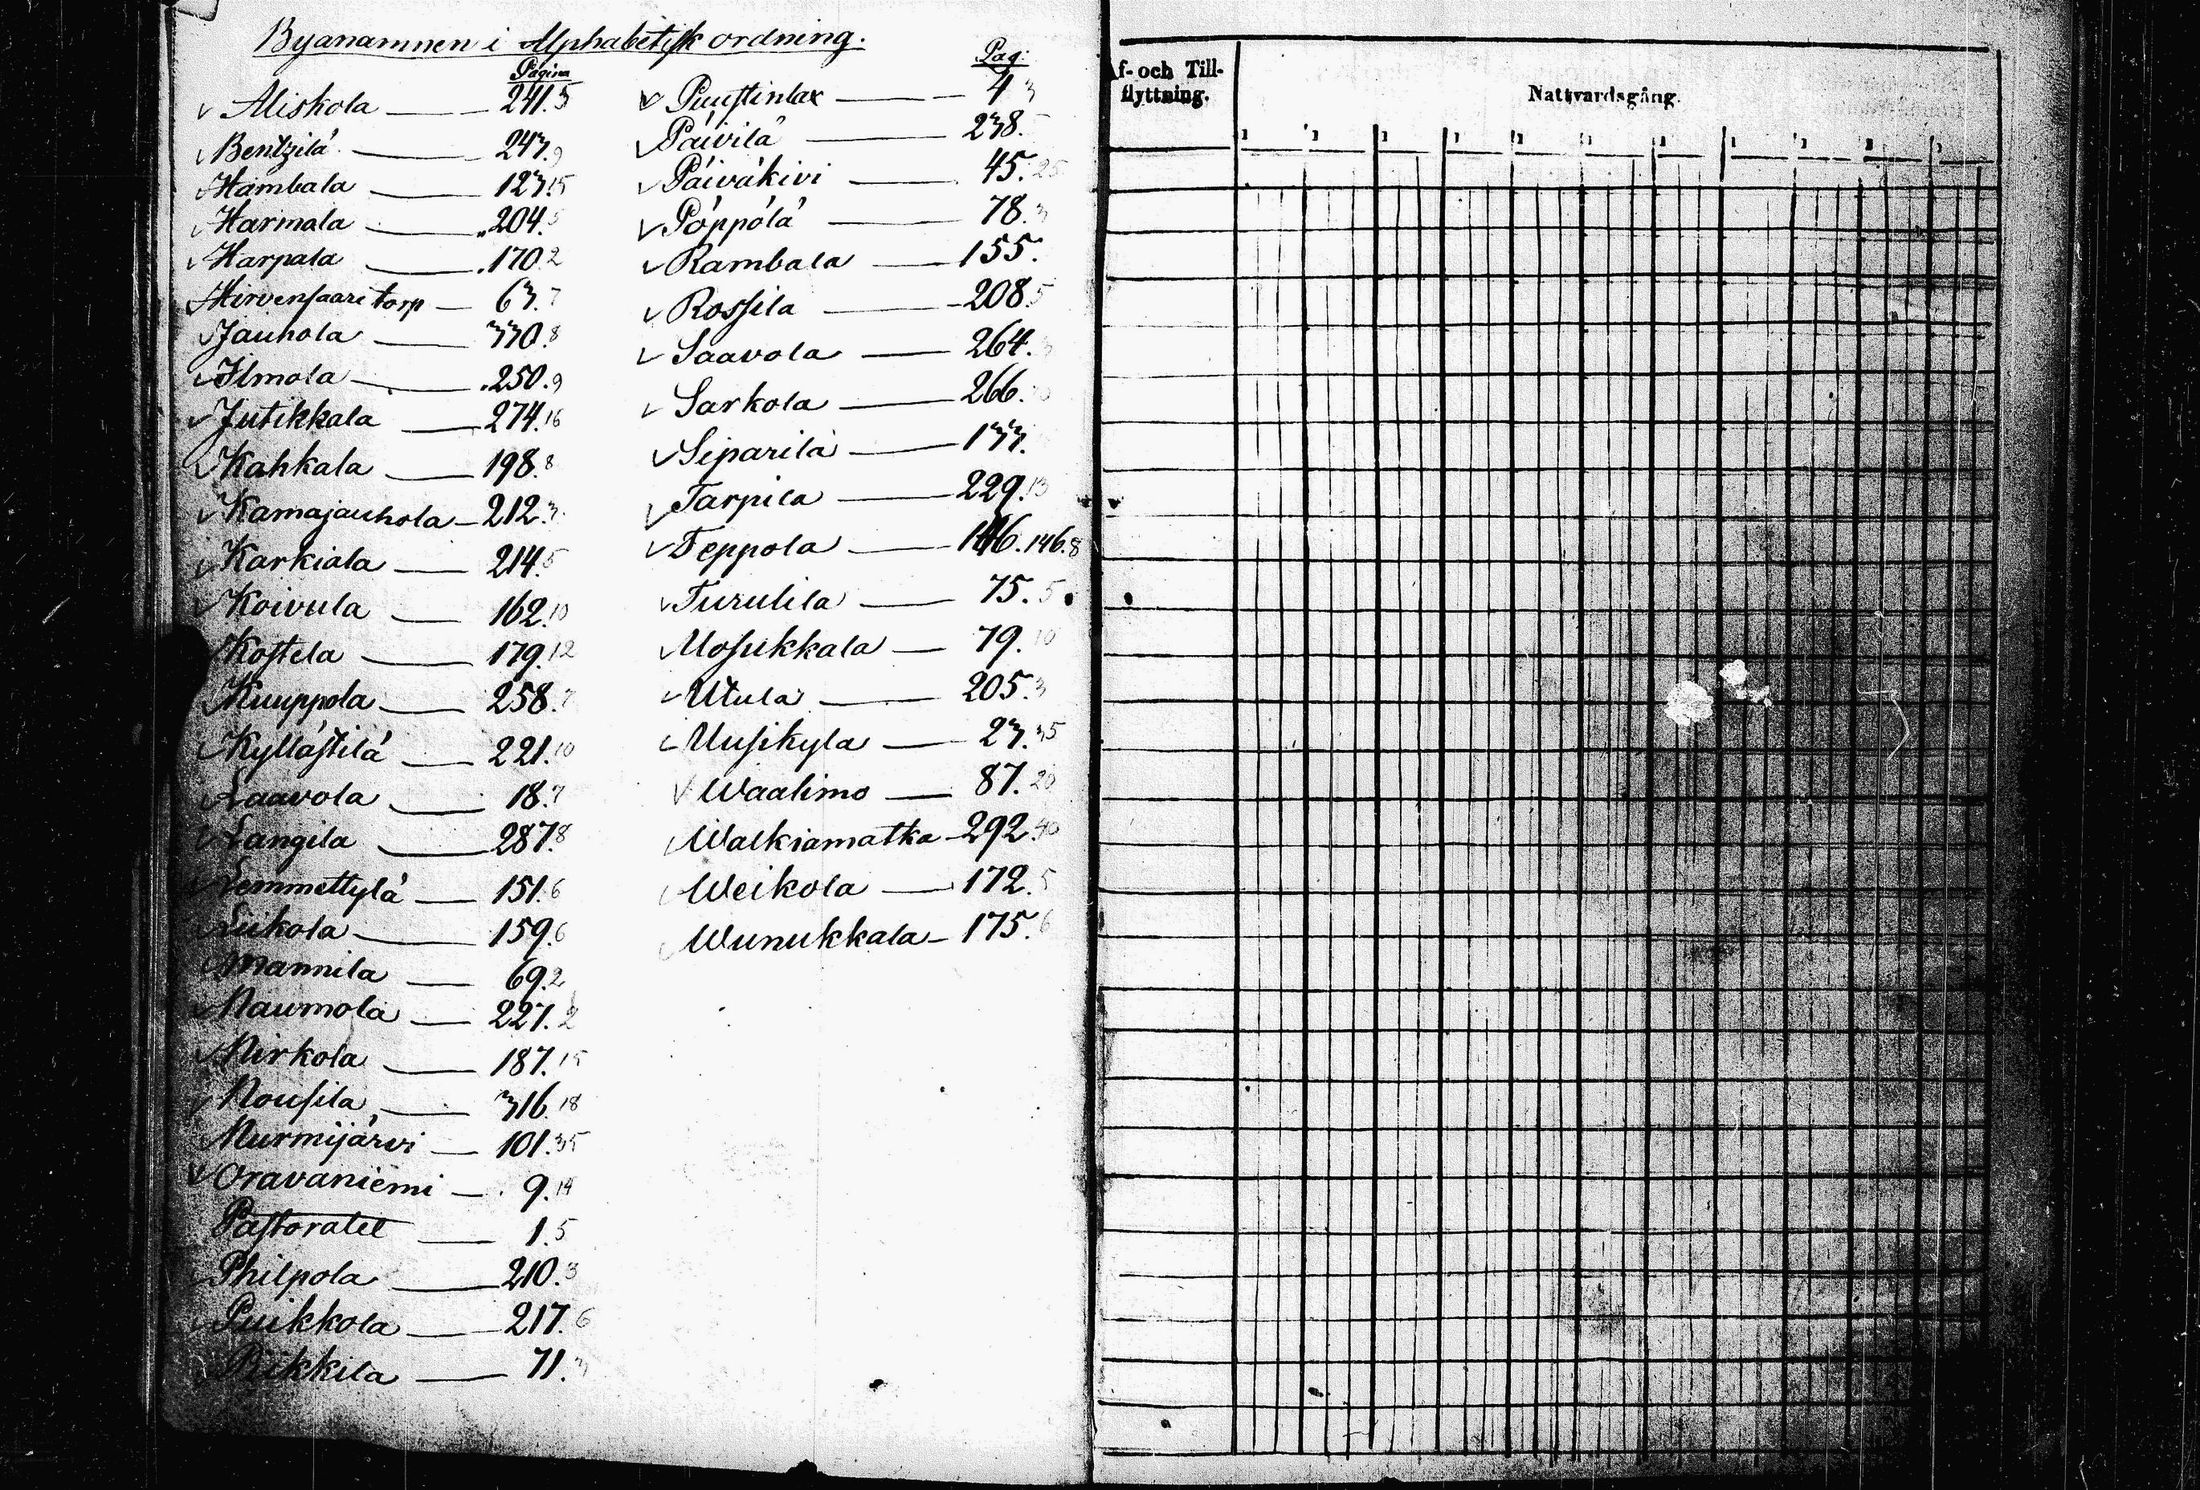 Byanamnen i Alphabetisk ordning.
Pagina
Aliskola 241.5
Bentzilä 243.9
Hambala 123.15
Harmala 204.5
Harpala 170.2
Hirvensaari torp 63.7
Jauhola 330.8
Ilmola 250.9
Jutikkala 274.16
Kahkala 198.8
Kamajauhola 212.3
Karkiala 214.5
Koivula 162.10
Kostela 179.12
Kuuppola 258.7
Kyllästilä 221.10
Laavola 18.7
Langila 287.8
Lemmettylä 151.6
Liikola 159.6
Mannila 69.2
Naumola 227.2
Nirkola 187.15
Nousila 316.18
Nurmijärvi 101.35
Oravaniemi 9.14
Pastoratet 1.5
Philpola 210.3
Puikkola 217.6
Pikkila 71.3
Pag:
Puustinlax 4.3
Päivilä 238.
Päiväkivi 45.25
Pöppölä 78.3
Rambala 155.
Rossila 208.5
Saavola 264.3
Sarkola 266.
Siparilä 133.
Tarpila 229.13
Teppola 146.146.8
Turulila 75.5
Uosukkala 79.10
Utula 205.3
Uusikyla 23.35
Waalimo 87.20
Walkiamatka 292.40
Weikola 172.5
Wunukkala 175.6
Af- och Till-
flyttning.
Nattvardsgång.